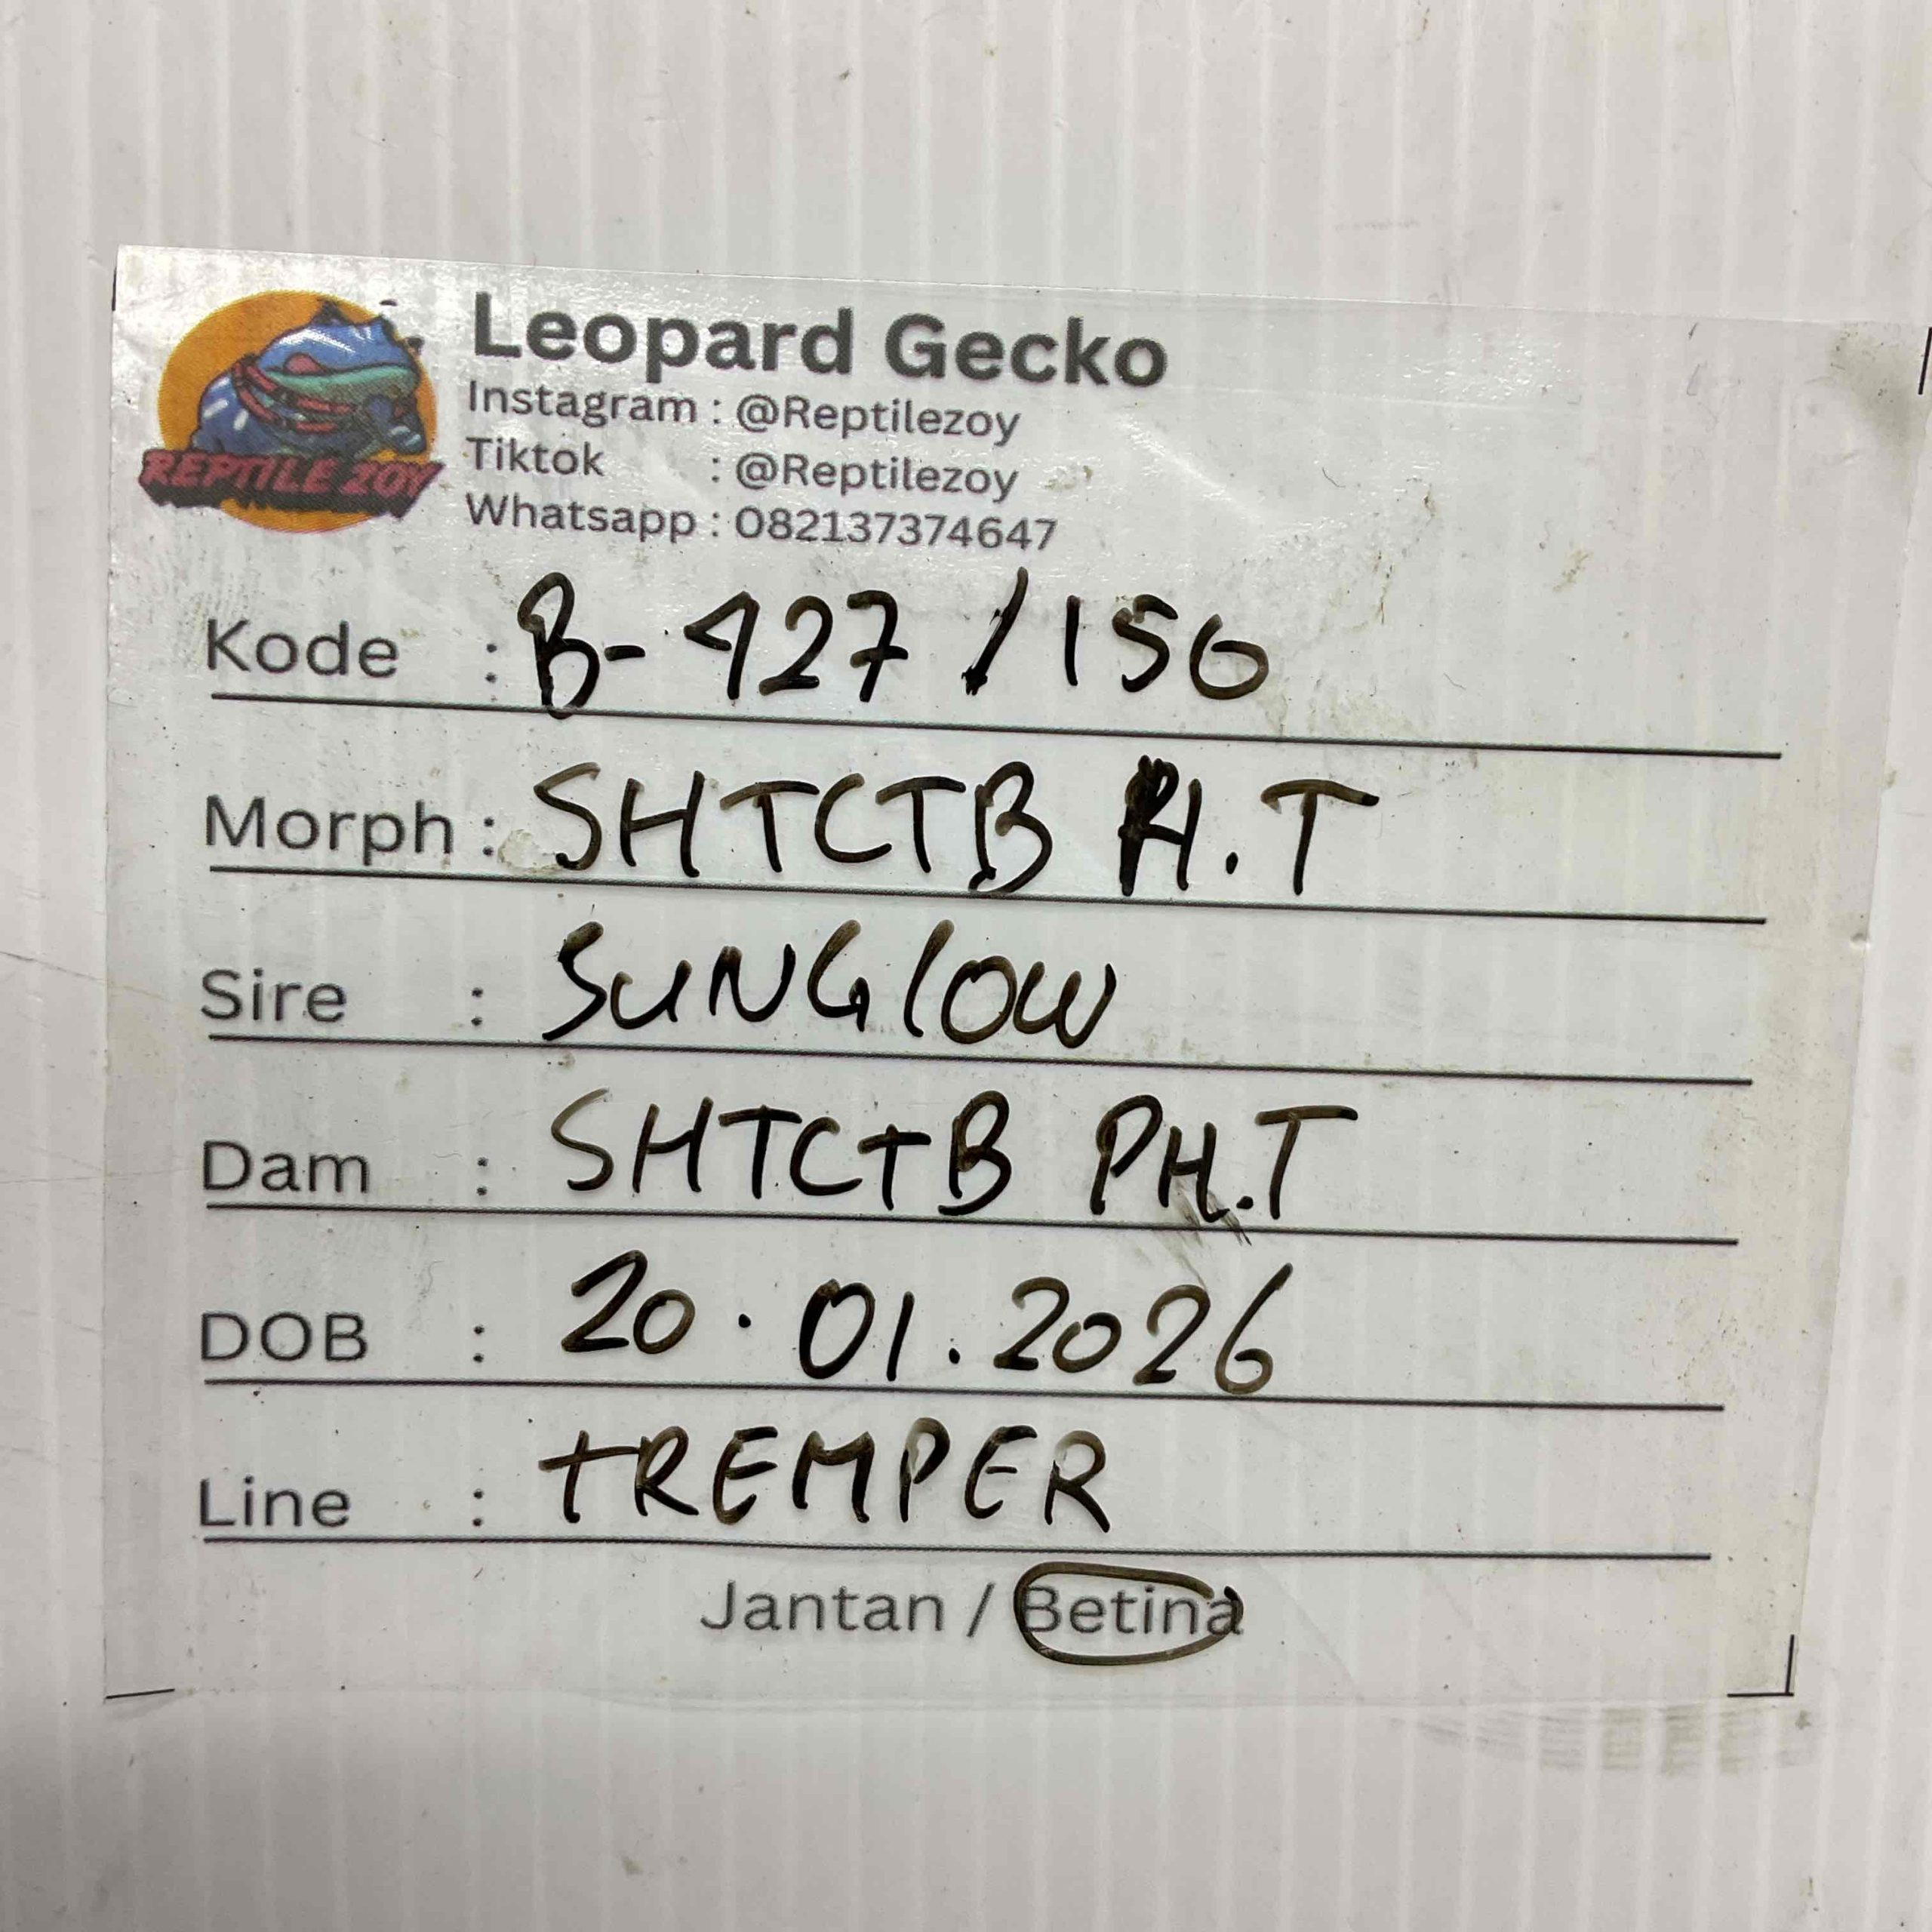 REPTILE ZOY
Leopard Gecko
Instagram : @Reptilezoy
Tiktok : @Reptilezoy
Whatsapp : 082137374647
Kode : B-427/150
Morph : SHTCTB H.T
Sire : SUNGlOW
Dam : SHTCTB PH.T
DOB : 20.01.2026
Line : tREMPER
Jantan / Betina